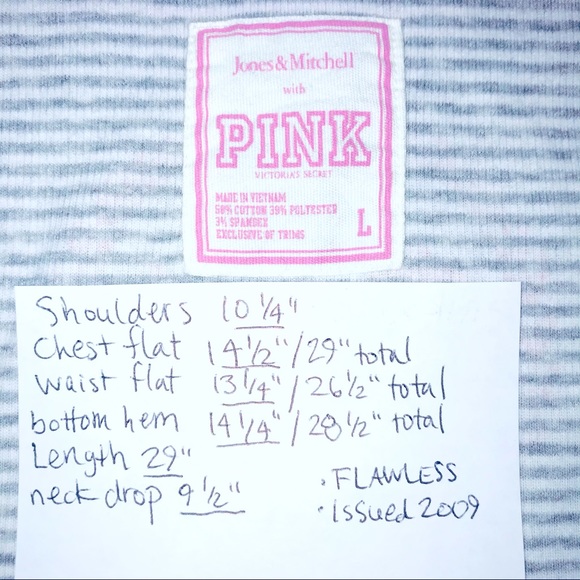 Jones & Mitchell
with
PINK
VICTORIA'S SECRET
MADE IN VIETNAM
58% COTTON 39% POLYESTER
3% SPANDEX
EXCLUSIVE OF TRIMS
L
Shoulders 10 1/4"
Chest flat 14 1/2" / 29" total
waist flat 13 1/4" / 26 1/2" total
bottom hem 14 1/4" / 28 1/2" total
Length 29"
neck drop 9 1/2"
· FLAWLESS
· issued 2009